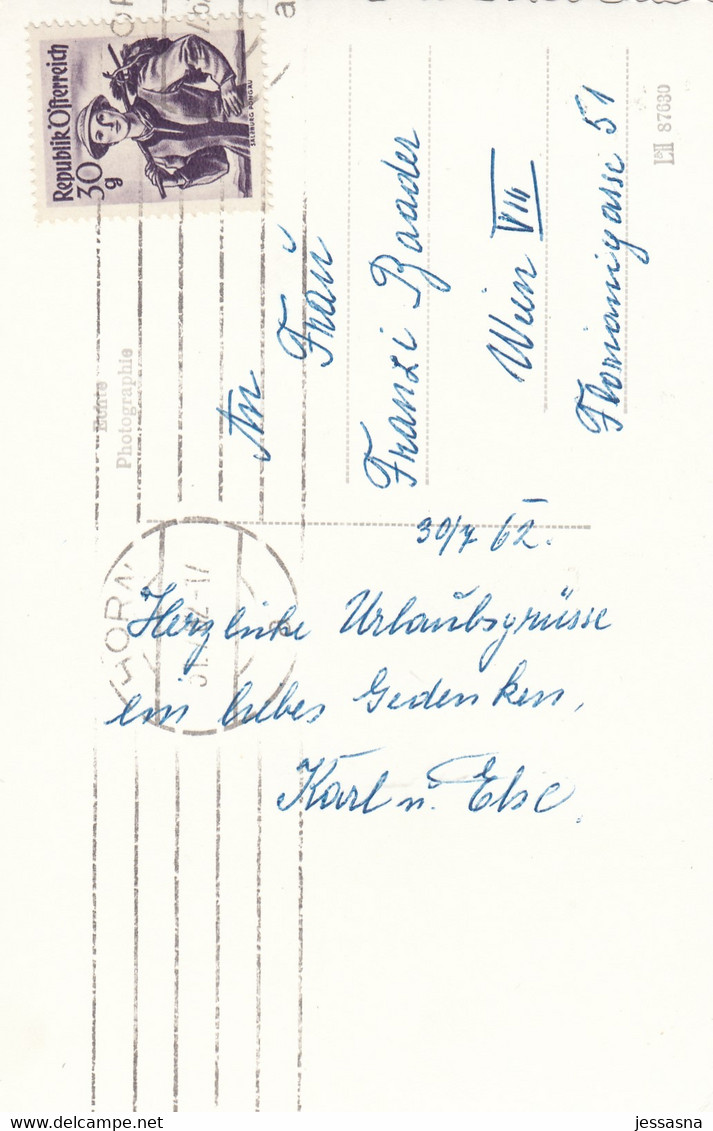 Republik Österreich
30 g
SALZBURG PONGAU
HORN
a
Echte
Photographie
An
Frau
Franzi Baader
Wien VIII
Florianigasse 51
L&II 87630
30/7 62.
Herzliche Urlaubsgrüsse
ein liebes Gedenken,
Karl u. Else.
jessasna